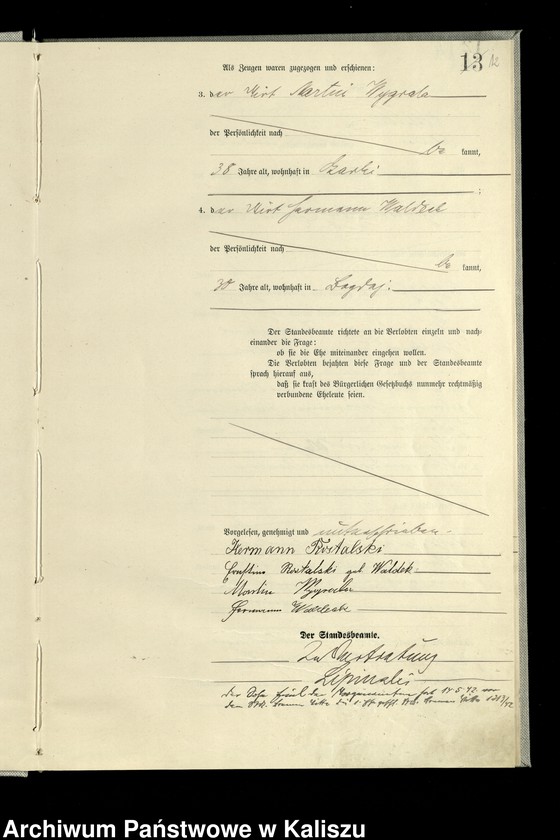 13
12
Als Zeugen waren zugezogen und erschienen:
3. der Wirt Martin Wygrala
der Persönlichkeit nach
be kannt,
38 Jahre alt, wohnhaft in
;
4. der Wirt Hermann Waldek
der Persönlichkeit nach
be kannt,
30 Jahre alt, wohnhaft in Bogdaj.
Der Standesbeamte richtete an die Verlobten einzeln und nach-
einander die Frage:
ob sie die Ehe miteinander eingehen wollen.
Die Verlobten bejahten diese Frage und der Standesbeamte
sprach hierauf aus,
daß sie kraft des Bürgerlichen Gesetzbuchs nunmehr rechtmäßig
verbundene Eheleute seien.
Vorgelesen, genehmigt und unterschrieben.
Hermann Rostalski
Ernstine Rostalski geb Waldek
Martin Wygrala
Hermann
Der Standesbeamte.
In Vertretung
Archiwum Państwowe w Kaliszu